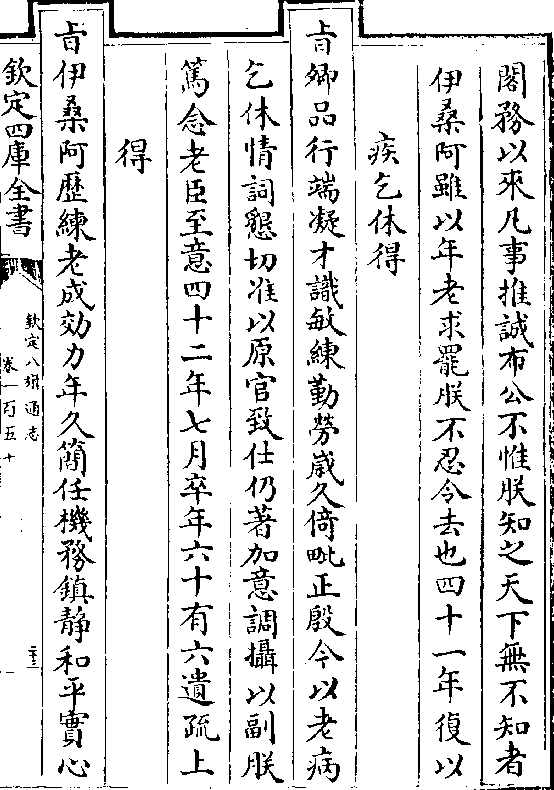 閣務以來凡事推誠布公不惟朕知之天下無不知者
伊桑阿雖以年老求罷朕不忍令去也四十一年復以
疾乞休得
旨卿品行端凝才識敏練勤勞歲久倚毗正殷今以老病
乞休情詞懇切准以原官致仕仍著加意調攝以副朕
篤念老臣至意四十二年七月卒年六十有六遺疏上
得
旨伊桑阿歷練老成効力年久簡任機務鎮靜和平實心
欽定四庫全書
欽定八旗通志
卷一百五十
二十三